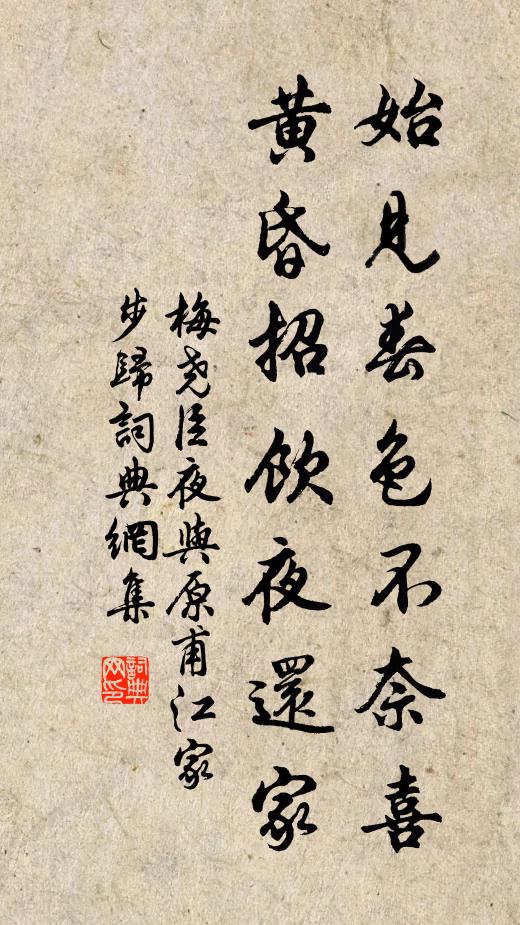 始見春色不奈喜
黃昏招飲夜還家
梅堯臣夜與原甫江家
步歸詞典網集
詞典
網印